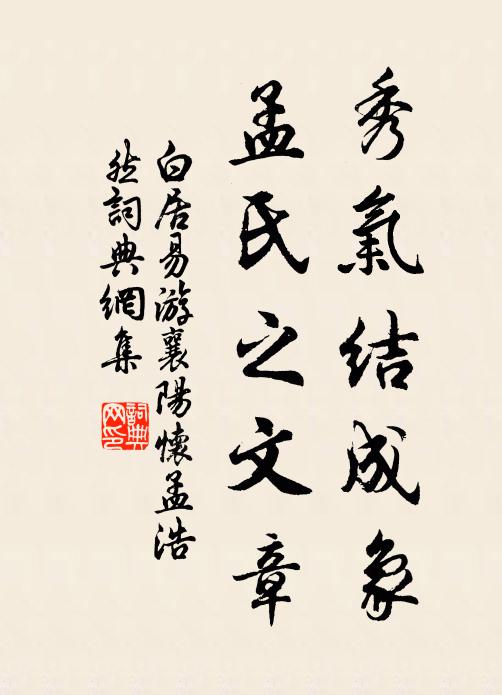 秀氣結成象
孟氏之文章
白居易游襄陽懷孟浩
然詞典網集
詞典
网印